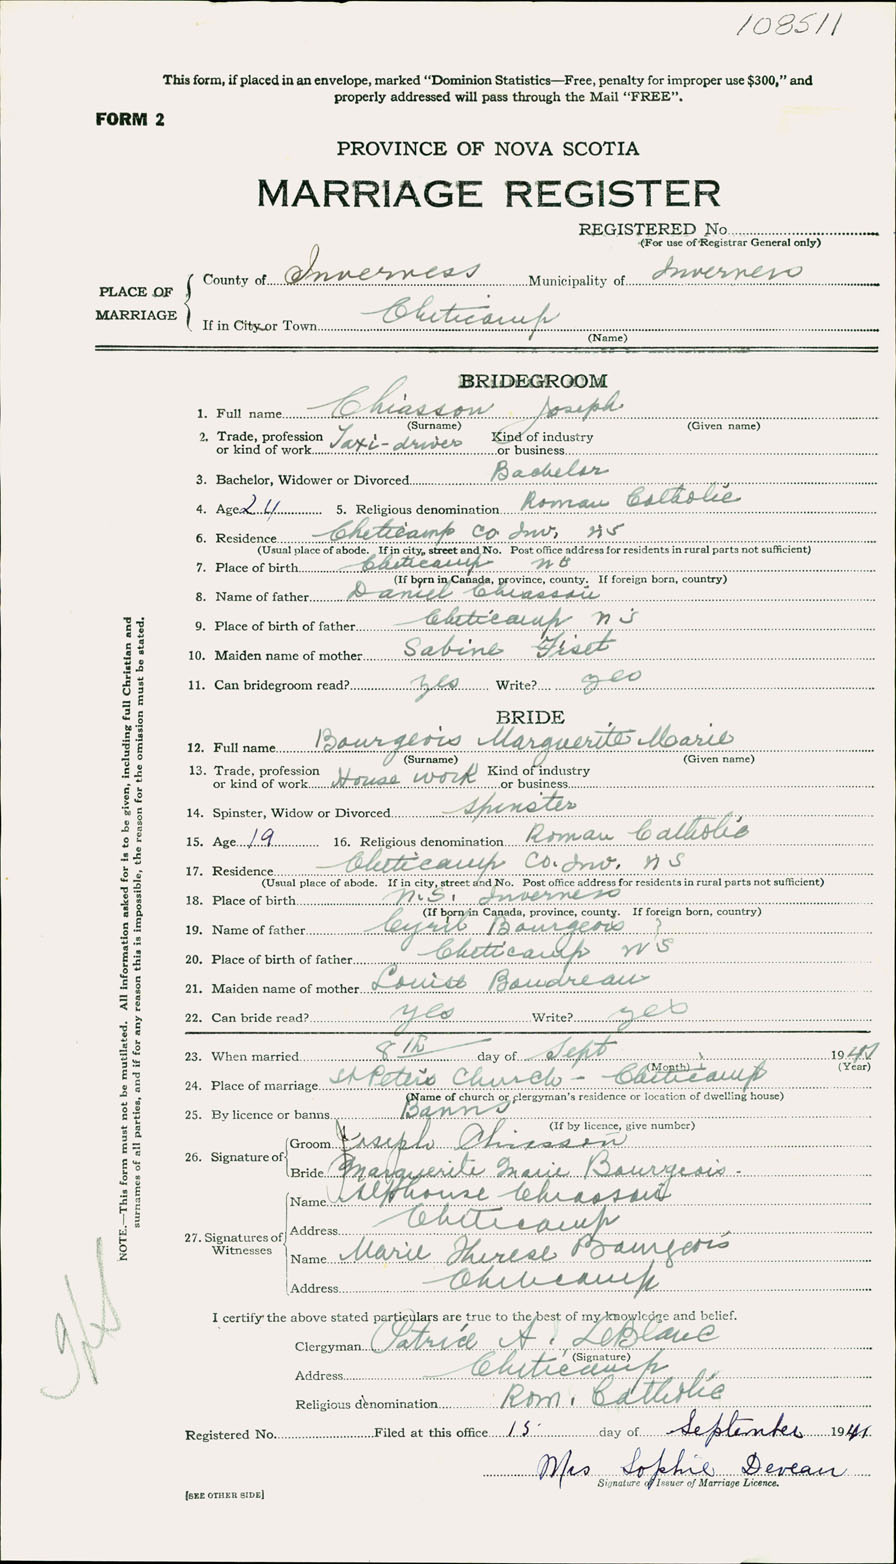 108511
This form, if placed in an envelope, marked "Dominion Statistics—Free, penalty for improper use $300," and
properly addressed will pass through the Mail "FREE".
FORM 2
PROVINCE OF NOVA SCOTIA
MARRIAGE REGISTER
REGISTERED No.
(For use of Registrar General only)
PLACE OF MARRIAGE
County of Inverness Municipality of Inverness
If in City or Town Cheticamp
(Name)
BRIDEGROOM
1. Full name Chiasson Joseph
(Surname) (Given name)
2. Trade, profession or kind of work Taxi-driver Kind of industry or business
3. Bachelor, Widower or Divorced Bachelor
4. Age 24 5. Religious denomination Roman Catholic
6. Residence Cheticamp Co Inv. NS
(Usual place of abode. If in city, street and No. Post office address for residents in rural parts not sufficient)
7. Place of birth Cheticamp NS
(If born in Canada, province, county. If foreign born, country)
8. Name of father Daniel Chiasson
9. Place of birth of father Cheticamp NS
10. Maiden name of mother Sabine Fiset
11. Can bridegroom read? yes Write? yes
BRIDE
12. Full name Bourgeois Marguerite Marie
(Surname) (Given name)
13. Trade, profession or kind of work House work Kind of industry or business
14. Spinster, Widow or Divorced Spinster
15. Age 19 16. Religious denomination Roman Catholic
17. Residence Cheticamp Co. Inv. NS
(Usual place of abode. If in city, street and No. Post office address for residents in rural parts not sufficient)
18. Place of birth N.S. Inverness
(If born in Canada, province, county. If foreign born, country)
19. Name of father Cyril Bourgeois
20. Place of birth of father Cheticamp NS
21. Maiden name of mother Louise Boudreau
22. Can bride read? yes Write? yes
23. When married 8th day of Sept 1941
(Month) (Year)
24. Place of marriage St Peter's Church - Cheticamp
(Name of church or clergyman's residence or location of dwelling house)
25. By licence or banns Banns
(If by licence, give number)
26. Signature of
Groom Joseph Chiasson
Bride Marguerite Marie Bourgeois -
27. Signatures of Witnesses
Name Alphonse Chiasson
Address Cheticamp
Name Marie Therese Bourgeois
Address Cheticamp
I certify the above stated particulars are true to the best of my knowledge and belief.
Clergyman Patrice A. LeBlanc
(Signature)
Address Cheticamp
Religious denomination Rom. Catholic
Registered No. Filed at this office 15 day of September 1941.
Mrs Sophie Deveau
Signature of Issuer of Marriage Licence.
[SEE OTHER SIDE]
NOTE.—This form must not be mutilated. All information asked for is to be given, including full Christian and
surnames of all parties, and if for any reason this is impossible, the reason for the omission must be stated.